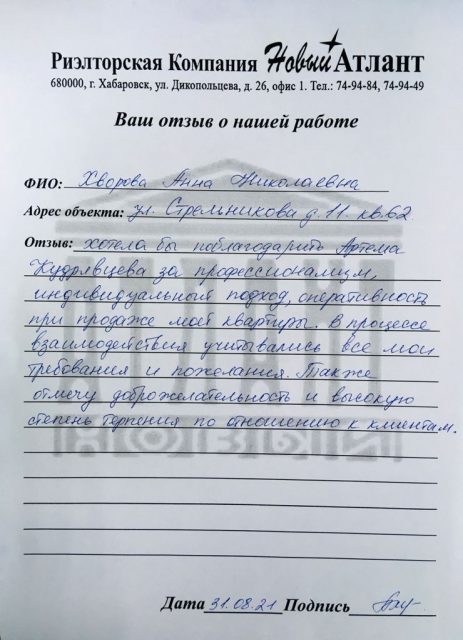 Риэлторская Компания Новый Атлант
680000, г. Хабаровск, ул. Дикопольцева, д. 26, офис 1. Тел.: 74-94-84, 74-94-49
Ваш отзыв о нашей работе
ФИО: Хворова Анна Николаевна
Адрес объекта: ул. Стрельникова д. 11. кв. 62
Отзыв: хотела бы поблагодарить Артема
Кудрявцева за профессионализм,
индивидуальный подход, оперативность
при продаже моей квартиры. В процессе
взаимодействия учитывались все мои
требования и пожелания. Также
отмечу доброжелательность и высокую
степень терпения по отношению к клиентам.
Дата 31.08.21 Подпись